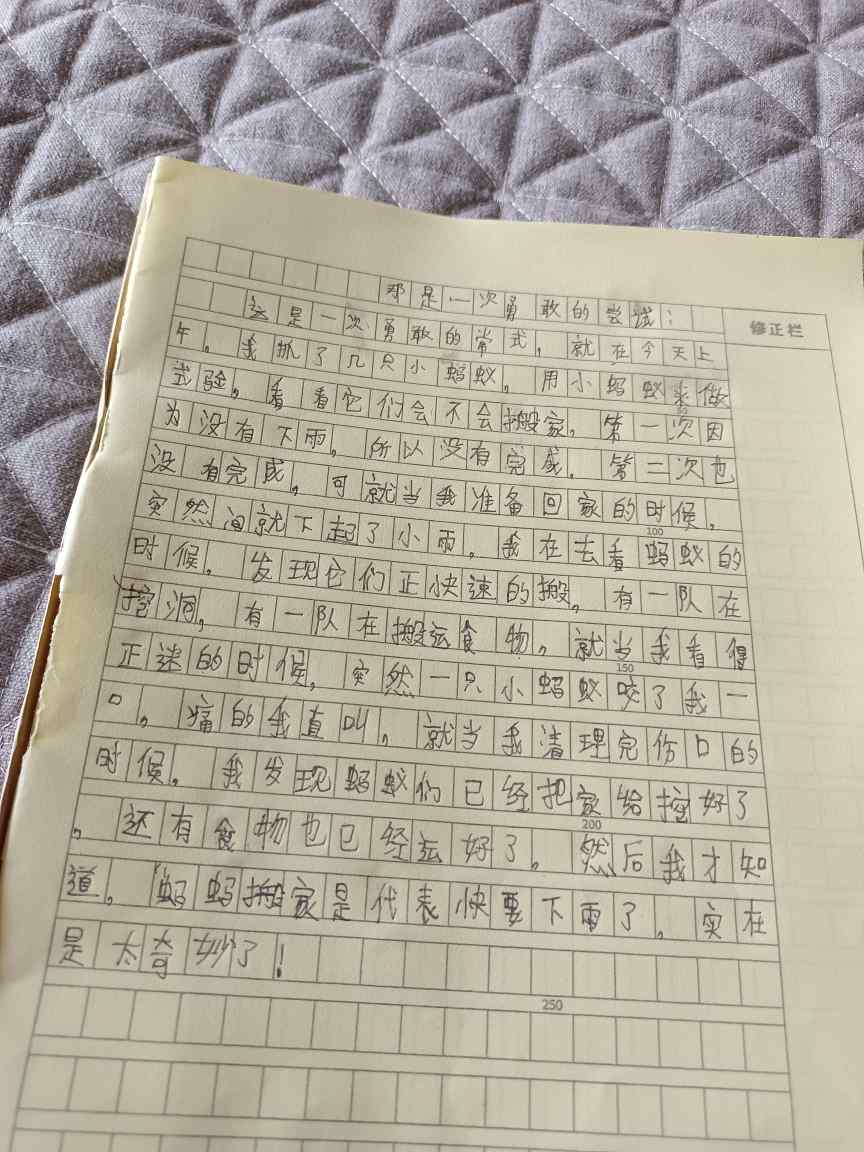 那是一次勇敢的尝试：
这是一次勇敢的常式，就在今天上
午。我抓了几只小蚂蚁。用小蚂蚁来做
式验。看看它们会不会搬家。第一次因
为没有下雨，所以没有完成。第二次也
没有完成，可就当我准备回家的时候，
突然间就下起了小雨，我在去看蚂蚁的
时候，发现它们正快速的搬，有一队在
挖洞，有一队在搬运食物。就当我看得
正迷的时候，突然一只小蚂蚁咬了我一
口，痛的我直叫，就当我清理完伤口的
时候，我发现蚂蚁们已经把家给挖好了
。还有食物也已经运好了，然后我才知
道，蚂蚂搬家是代表快要下雨了，实在
是太奇妙了！
修正栏
50
100
150
200
250